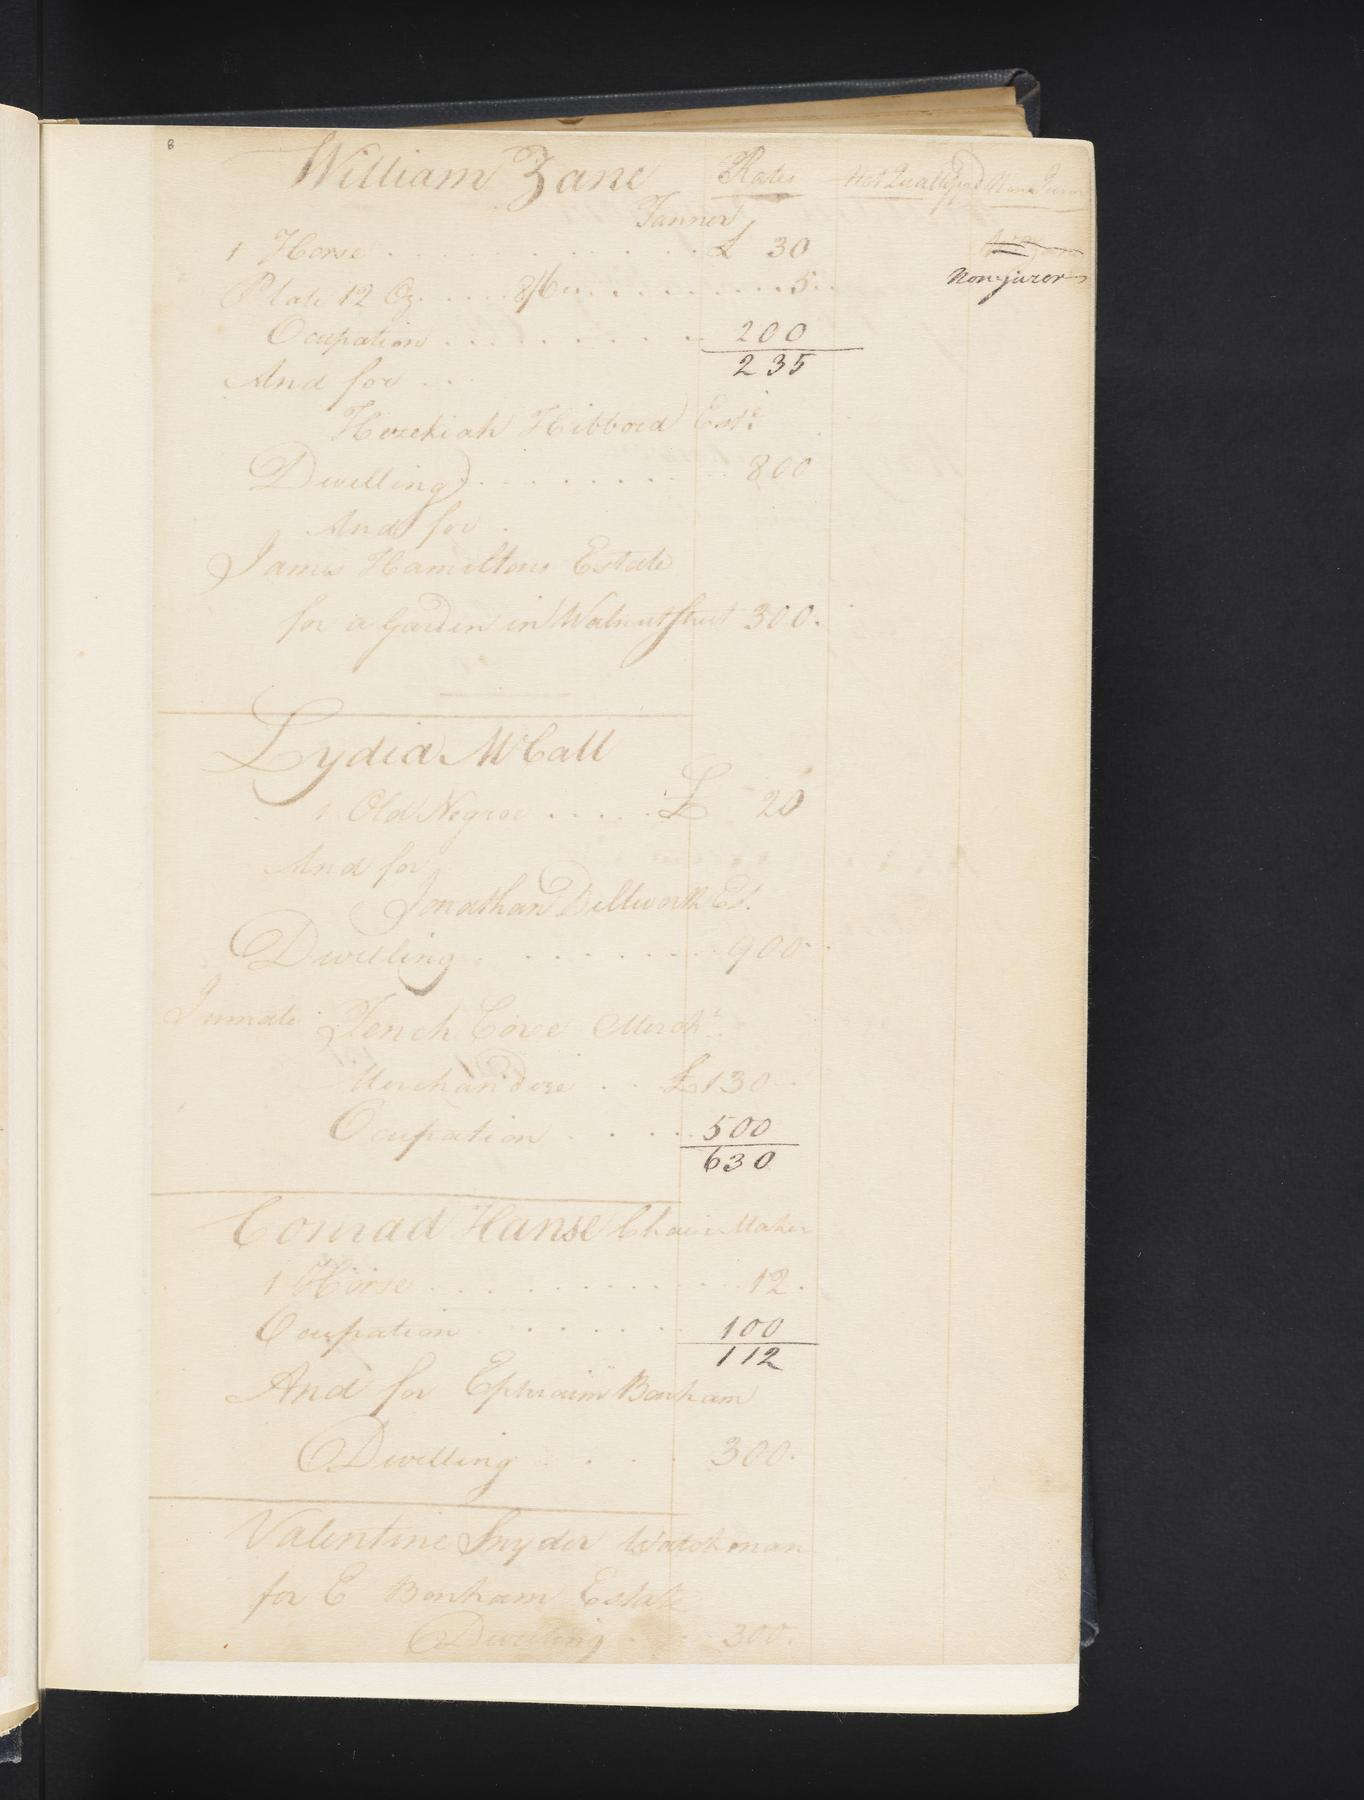 8
William Zane Rates Not Qualifyed Non Juror
Tanner
1 Horse £ 30
Non-juror
Plate 12 Oz. 8/6 5
Ocupation 200
235
And for
Hezekiah Hibberd Est.
Dwelling 800
And for
James Hamiltons Estate
for a Garden in Walnut Street 300.
Lydia McCall
1 Old Negroe £ 20
And for
Jonathan Dillworth Est.
Dwelling 900
Inmate Tench Coxe Mercht.
Merchandize £130
Ocupation 500
630
Conrad Hanse Chair Maker
1 Horse 12.
Ocupation 100
112
And for Ephraim Bonham
Dwelling 300.
Valentine Snyder Watchman
for E Bonham Estate
Dwelling 300.